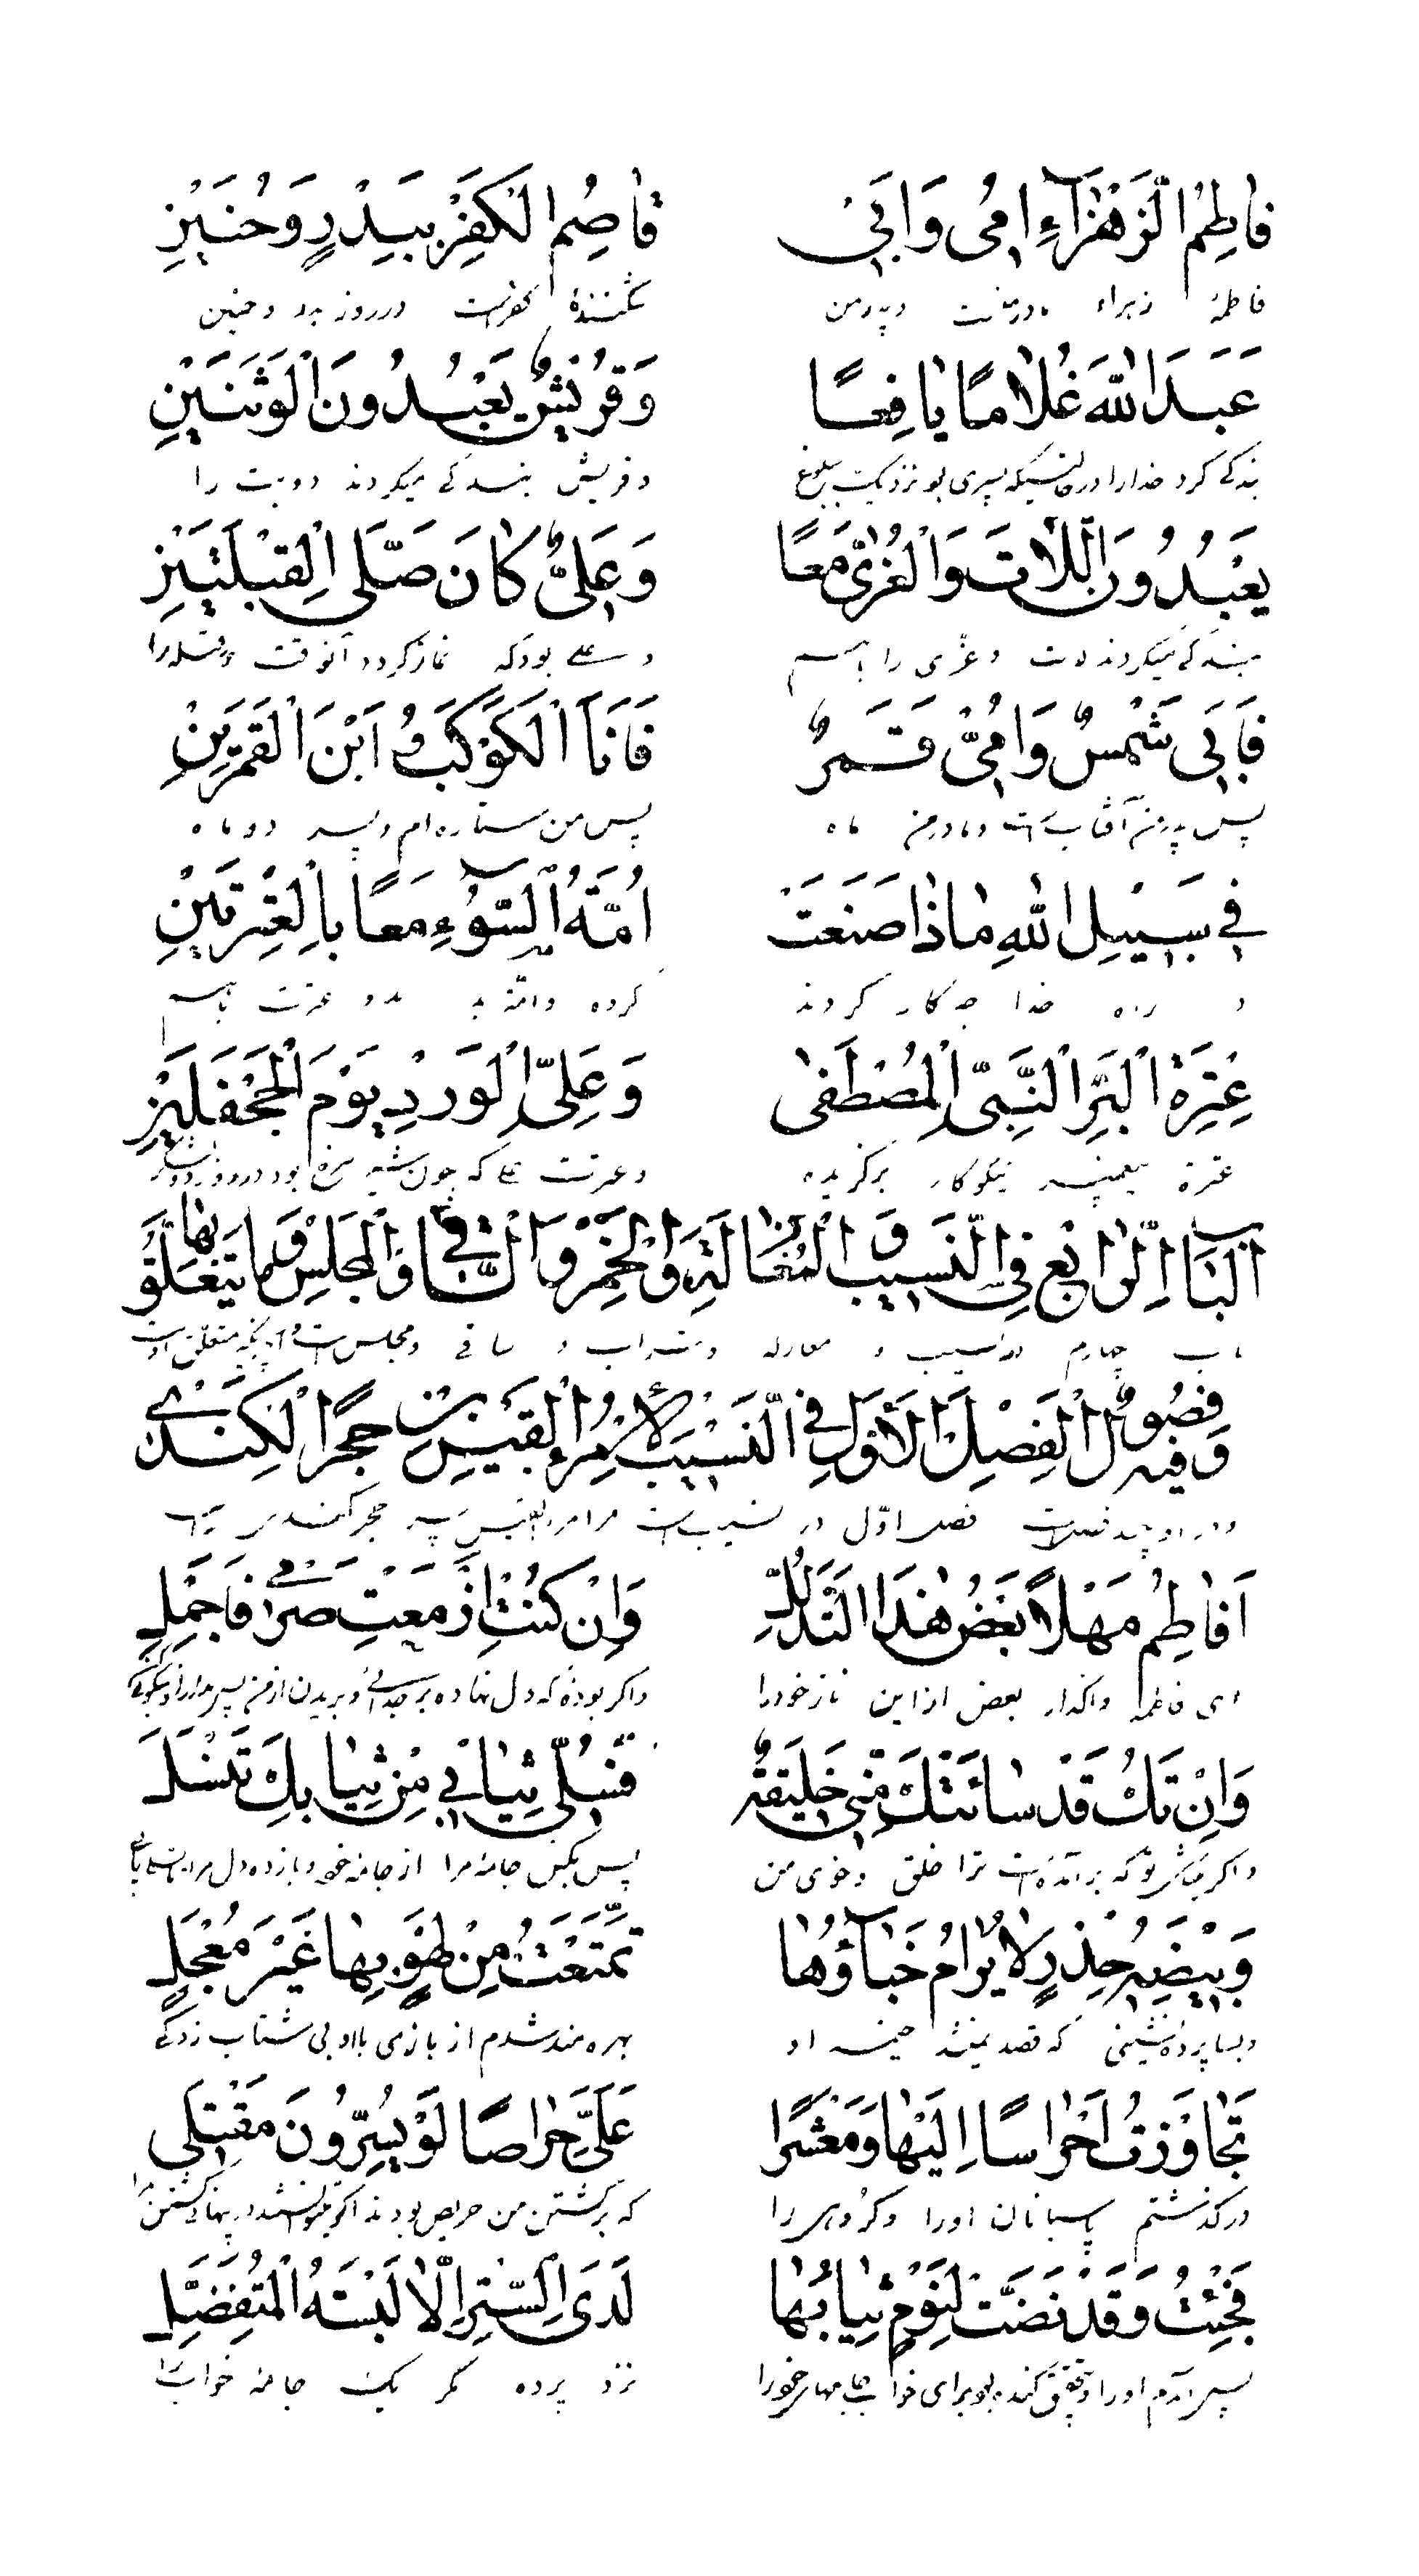 فَاطِمُ الزَّهْرَآءِ اُمِّی وَاَبِیْ قَاصِمُ الْکُفْرِ بِبَدْرٍ وَحُنَیْنِ
فاطمهٔ زهراء مادر منست و پدر من شکنندهٔ کفرست در روز بدر و حنین
عَبَدَ اللهَ غُلَامًا یَافِعًا وَقُرَیْشٌ یَعْبُدُونَ الْوَثَنَیْنِ
بندگی کرد خدا را پسری بود نزدیک ببلوغ و قریش بندگی میکردند دو بت را
یَعْبُدُونَ اللَّاتَ وَالْعُزّٰی مَعًا وَعَلِیٌّ کَانَ صَلَّی الْقِبْلَتَیْنِ
بندگی میکردند لات و عزّی را باهم و علی بود که نماز کرد آنوقت دو قبله را
فَاَبِی شَمْسٌ وَاُمِّیْ قَمَرٌ فَاَنَا الْکَوْکَبُ وَابْنُ الْقَمَرَیْنِ
پس پدر من آفتابست و مادر من ماه پس من ستاره ام و پسر دو ماه
فِی سَبِیْلِ اللهِ مَاذَا صَنَعَتْ اُمَّةُ السَّوْءِ مَعًا بِالْعِتْرَتَیْنِ
در راه خدا چه کار کردند گروه و امّة بد بدو عترت باهم
عِتْرَةِ الْبَرِّ النَّبِیِّ الْمُصْطَفٰی وَعَلِیِّ الْوَرْدِ یَوْمَ الْجَحْفَلَیْنِ
عترة پیغمبر نیکوکار برگزیده و عترت علی که چون شیر سرخ بود در روز دو لشکر
اَلْبَابُ الرَّابِعُ فِی النَّسِیبِ وَ الْمُغَازَلَةِ وَالْخَمْرِ وَ السَّاقِی وَالْمَجْلِسِ وَمَا یَتَعَلَّقُ بِهَا
باب چهارم در نسیب و مغازله و شراب و ساقی و مجلس است و آنچه متعلّق
وَفِیهِ فُصُولٌ الْفَصْلُ الْاَوَّلُ فِی النَّسِیبِ لِامْرُءِ الْقَیْسِ بْنِ حِجْرِ الْکِنْدِیْ
و در او چند فصلست فصل اوّل در نسیب است مر امرءالقیس پسر حجر کندی راست
اَفَاطِمُ مَهْلًا بَعْضَ هٰذَا التَّدَلُّلِ وَاِنْ کُنْتِ اَزْمَعْتِ صَرْمِی فَاَجْمِلِی
ای فاطمه واگذار بعض از این ناز خود را و اگر بودهٔ که دل نهاده بر جدائی و بریدن از من پس
وَاِنْ تَكُ قَدْ سَائَتْكِ مِنِّی خَلِیقَةٌ فَسُلِّی ثِیَابِی مِنْ ثِیَابِكِ تَنْسَلِ
و اگر که برآمده ترا خلق و خوی من پس بکش جامهٔ مرا از جامهٔ خود
وَبَیْضَةِ خِدْرٍ لَا یُرَامُ خِبَآؤُهَا تَمَتَّعْتُ مِنْ لَهْوٍ بِهَا غَیْرَ مُعْجَلِ
و بسا پرده نشینی که قصد نمیشد خیمه او بهره مند شدم از بازی بااو بی شتاب زدگی
تَجَاوَزْتُ اَحْرَاسًا اِلَیْهَا وَمَعْشَرًا عَلَیَّ حِرَاصًا لَوْ یُسِرُّونَ مَقْتَلِی
درگذشتم پاسبانان او را و گروهی را که بر کشتن من حریص بودند اگر
فَجِئْتُ وَقَدْ نَضَتْ لِنَوْمٍ ثِیَابَهَا لَدَی السِّتْرِ اِلَّا لِبْسَةَ الْمُتَفَضِّلِ
پس آمدم او را کنده بود برای خواب جامهای خود را نزد پرده مگر یک جامهٔ خواب را